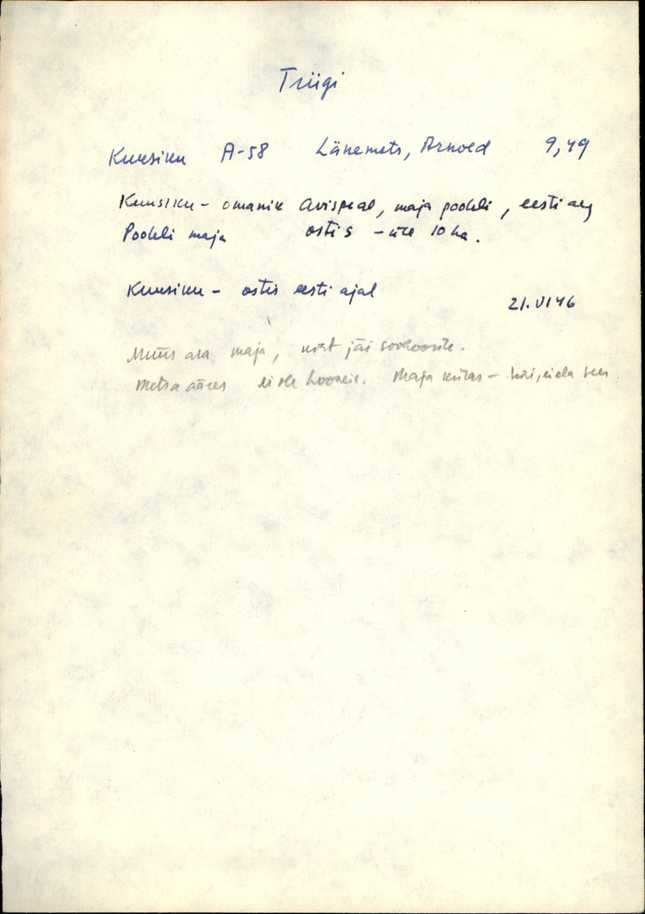 Triigi
Kuusiku A-58 Länemets, Arnold 9,49
Kuusiku - omanik Avispeal, maja poodeli, eesti aeg
Poodeli maja ostis - üle 10 ha.
Kuusiku - ostis eesti ajal
21.VI 46
Müüs ära maja, jäi
Metsa ääres ei ole hooneid. Maja külas -